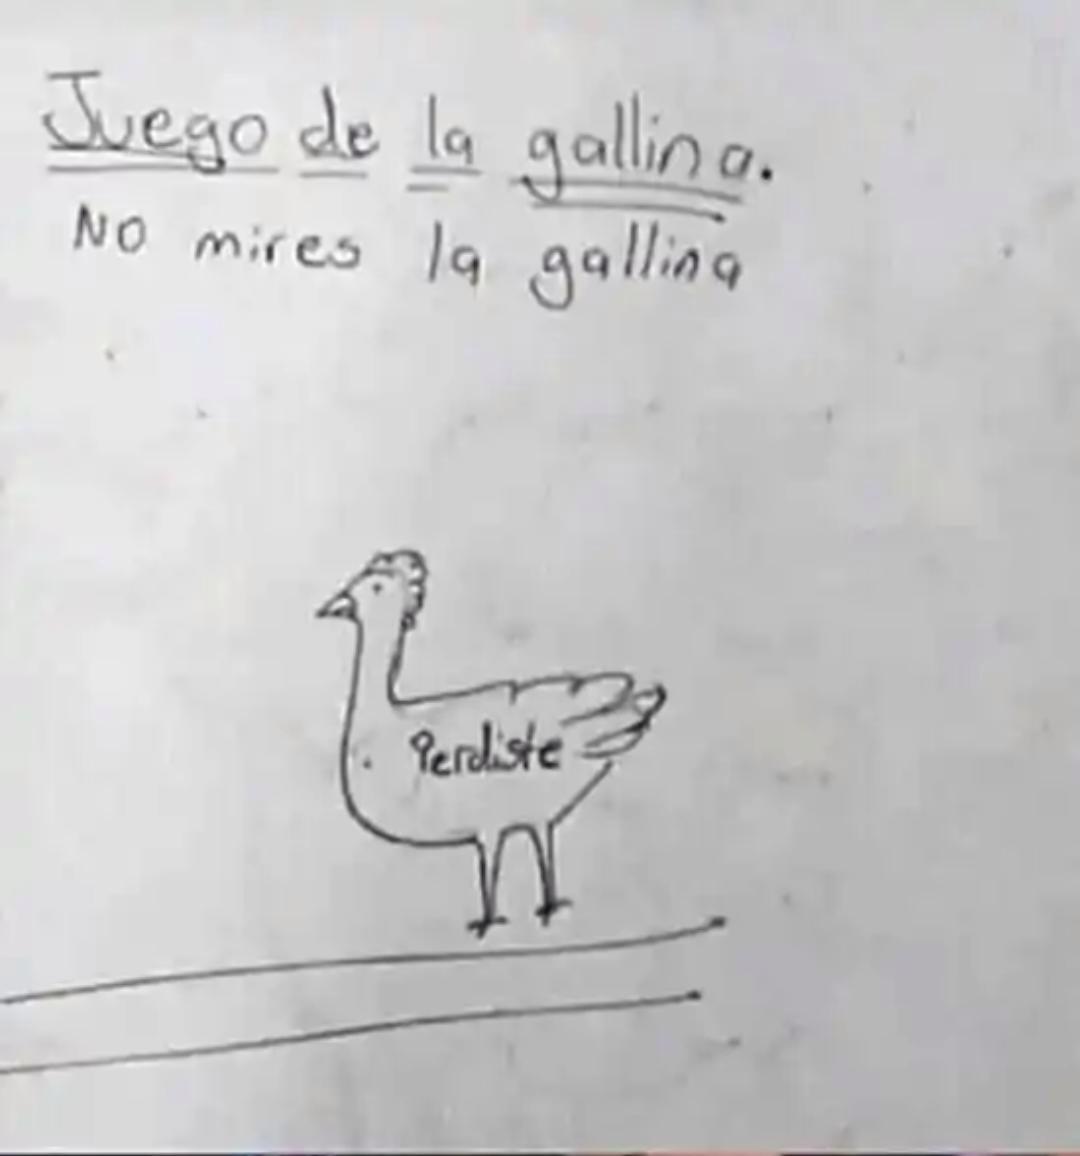 Juego de la gallina.
No mires la gallina
Perdiste